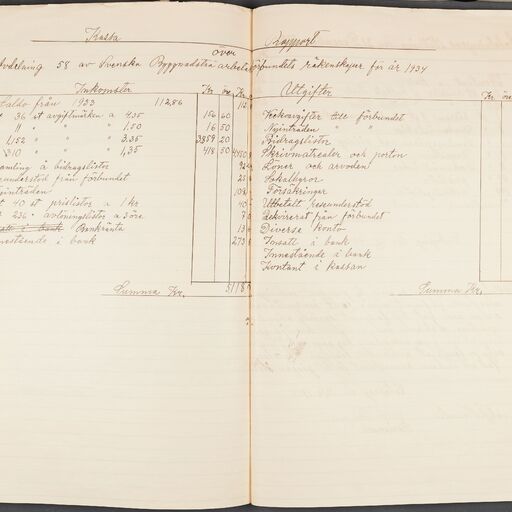 Kassa
över
Rapport
Avdelning 58 av Svenska Byggnadsträarbetareförbundets räkenskaper för år 1934
Inkomster
Kr. öre Kr.
Saldo från 1933 112,86 112
36 st avgiftmärken a 4.35 156 60
11 " " " 1.50 16 50
1,152 " " " 3.35 3859 20
310 " " " 1,35 418 50
Insamling å bidragslistor
Reseunderstöd från förbundet
Nyinträden
40 st prislistor a 1 kr 40
236 avlöningslistor a 3 öre
Insatt i bank Bankränta
Innestående i bank
Summa Kr.
Utgifter
Kr.
Veckoavgifter till förbundet
Nyinträden " "
Bidragslistor
Skrivmatrealer och porton
Löner och arvoden
Lokalhyror
Försäkringar
Utbetalt reseunderstöd
Rekvirerat från förbundet
Diverse konto
Insatt i bank
Innestående i bank
Kontant i kassan
Summa Kr.